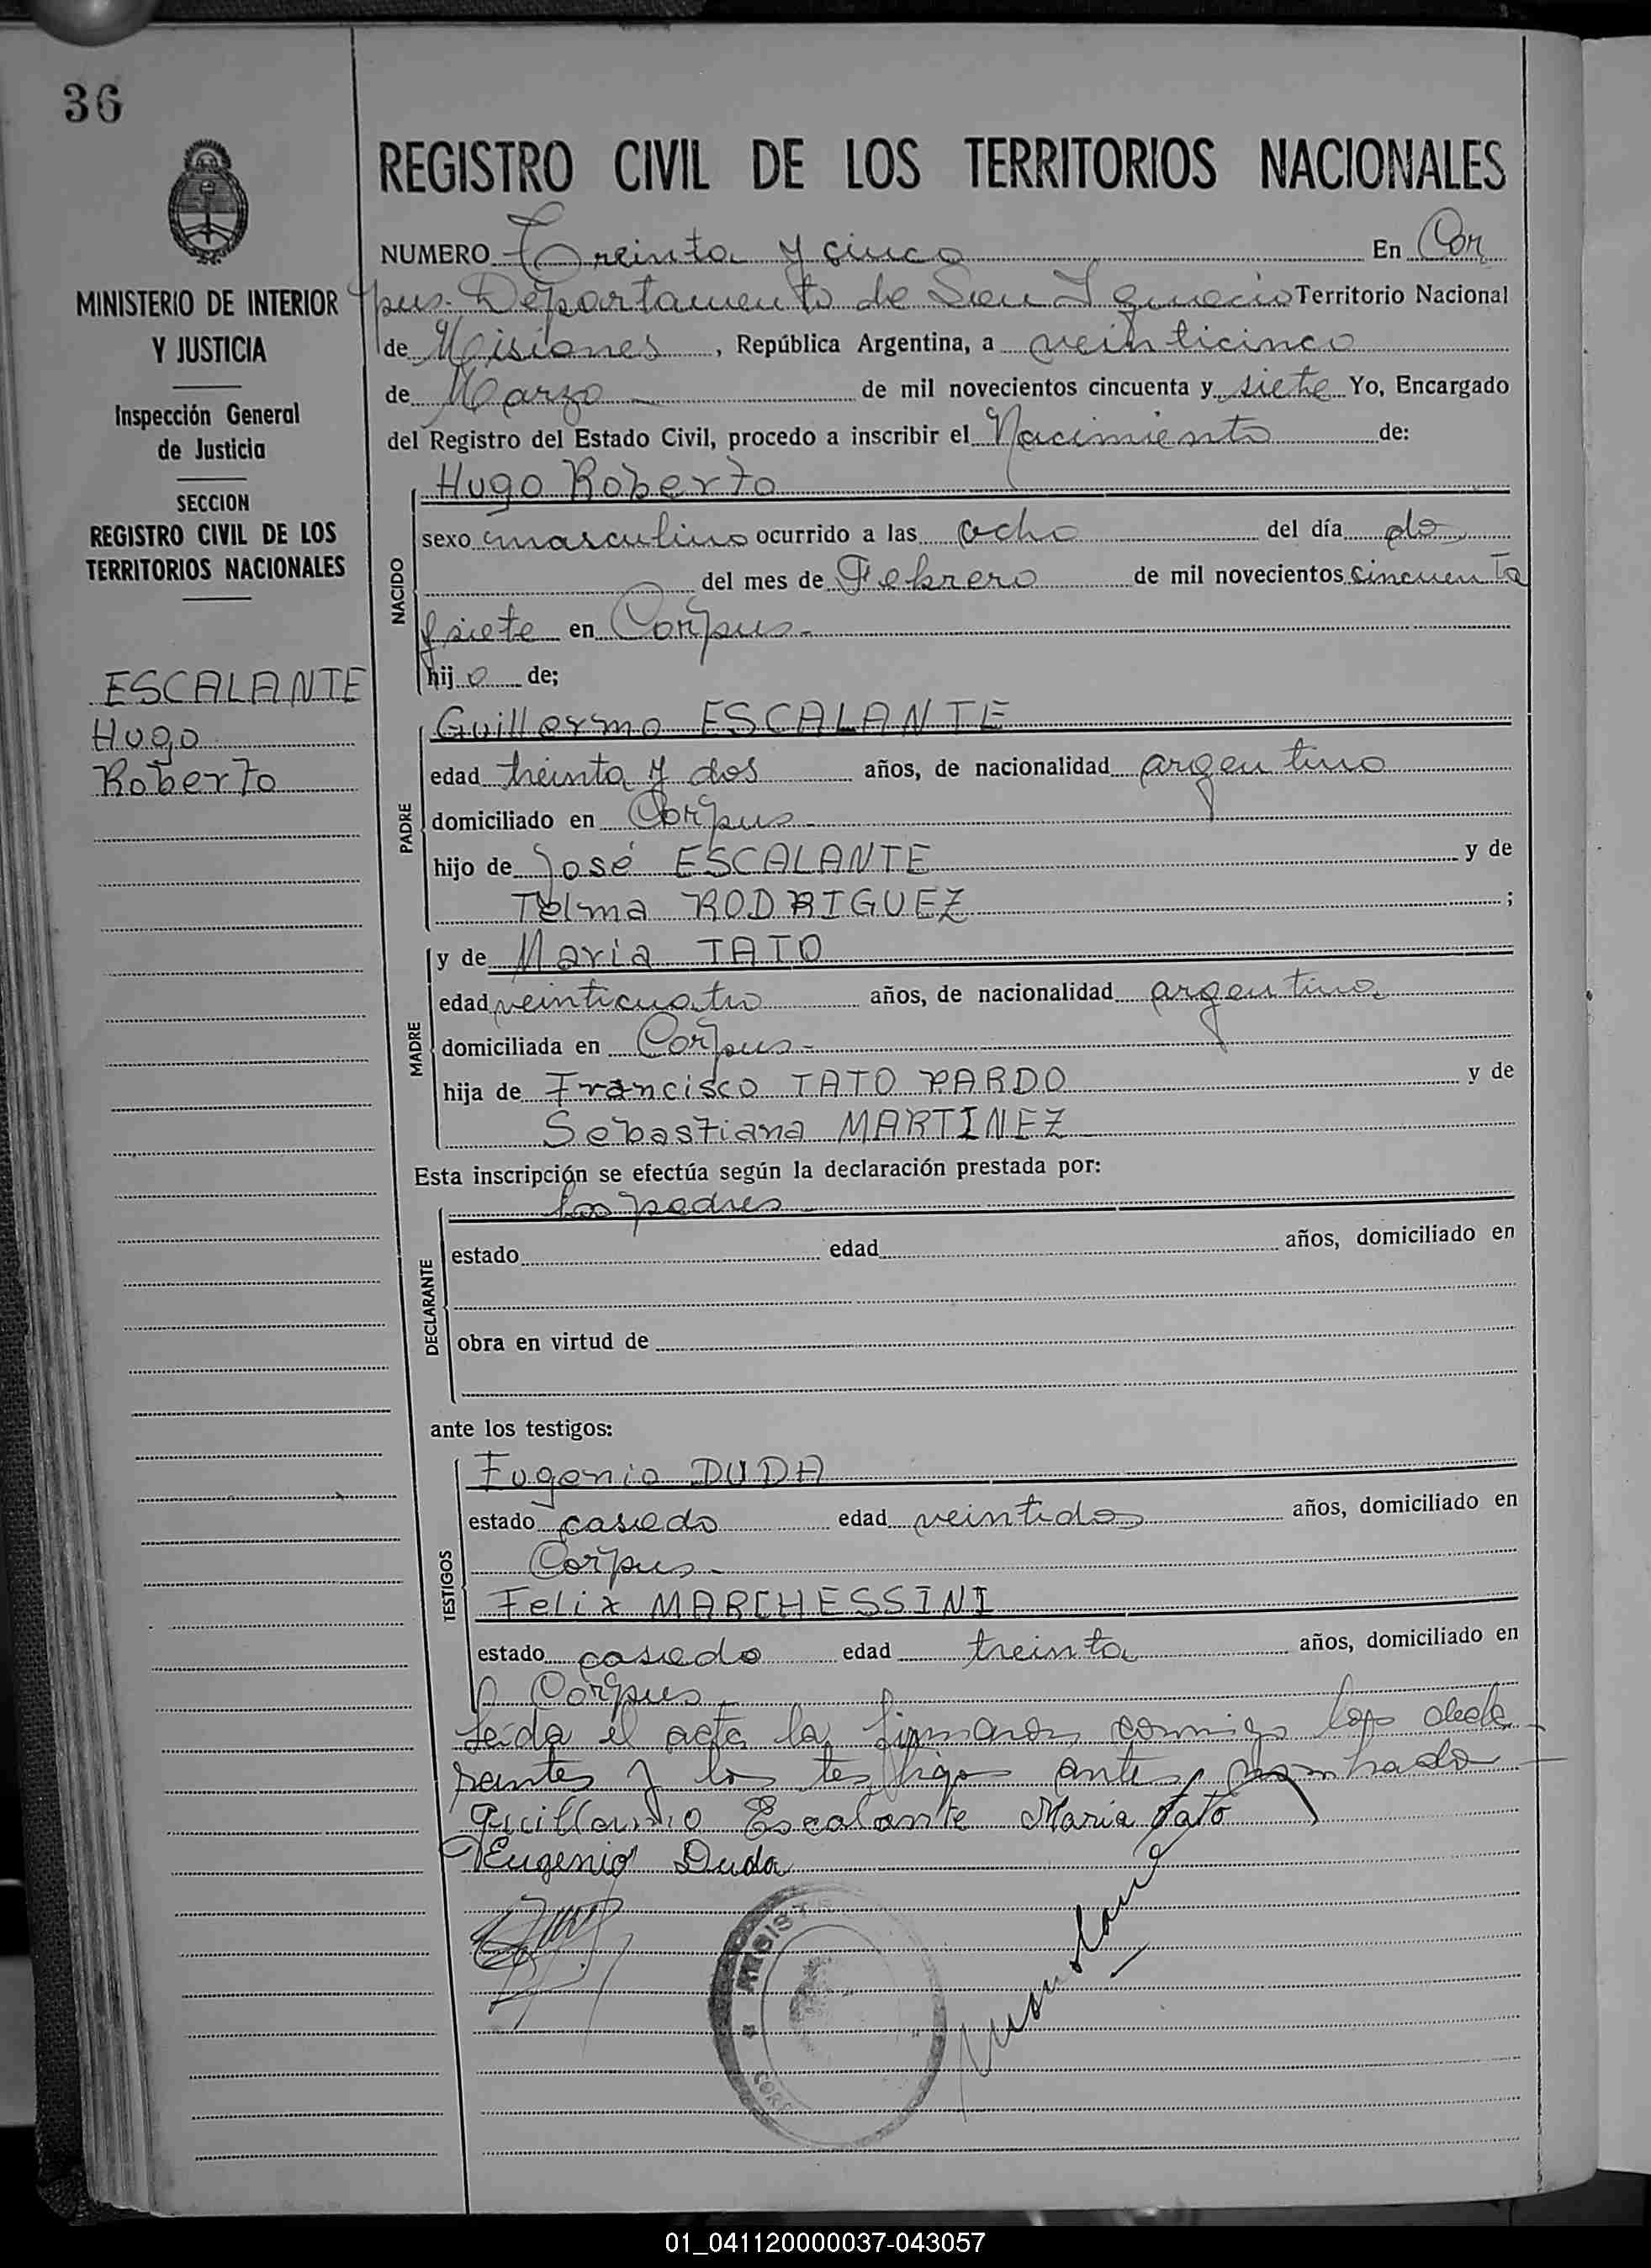 36
REGISTRO CIVIL DE LOS TERRITORIOS NACIONALES
MINISTERIO DE INTERIOR
Y JUSTICIA
Inspección General
de Justicia
SECCION
REGISTRO CIVIL DE LOS
TERRITORIOS NACIONALES
ESCALANTE
Hugo
Roberto
NUMERO Treinta y cinco En Cor
pus. Departamento de San Ignacio Territorio Nacional
de Misiones, República Argentina, a veinticinco
de Marzo de mil novecientos cincuenta y siete Yo, Encargado
del Registro del Estado Civil, procedo a inscribir el Nacimiento de:
NACIDO
Hugo Roberto
sexo masculino ocurrido a las ocho del día do
del mes de Febrero de mil novecientos cincuenta
y siete en Corpus.-
hijo de;
PADRE
Guillermo ESCALANTE
edad treinta y dos años, de nacionalidad argentino
domiciliado en Corpus.-
hijo de José ESCALANTE y de
Telma RODRIGUEZ ;
MADRE
y de Maria TATO
edad veinticuatro años, de nacionalidad argentina
domiciliada en Corpus.-
hija de Francisco TATO PARDO y de
Sebastiana MARTINEZ
Esta inscripción se efectúa según la declaración prestada por:
DECLARANTE
los padres
estado edad años, domiciliado en
obra en virtud de
ante los testigos:
TESTIGOS
Eugenio DUDA
estado casado edad veintidos años, domiciliado en
Corpus.-
Felix MARCHESSINI
estado casado edad treinta años, domiciliado en
Corpus.-
Leida el acta la firmaron conmigo los decla
rantes y los testigos antes nombrado
Guillermo Escalante Maria Tato
Eugenio Duda
REGIST
COR
01_041120000037-043057